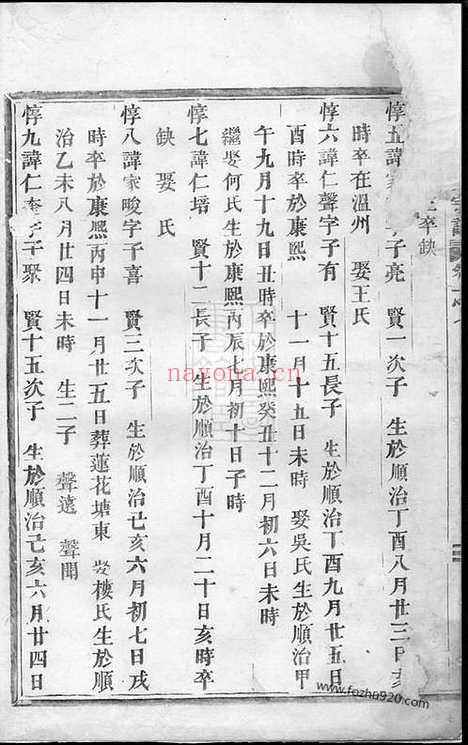 卒缺
惇五諱家 子亮 賢一次子 生於順治丁酉八月廿三日亥
時卒在溫州 娶王氏
惇六諱仁聲字子有 賢十五長子 生於順治丁酉九月廿五日
酉時卒於康熙 十一月十五日未時 娶吳氏生於順治甲
午九月十九日丑時卒於康熙癸丑十二月初六日未時
繼娶何氏生於康熙丙辰七月初十日子時
惇七諱仁培 賢十二長子 生於順治丁酉十月二十日亥時卒
缺 娶 氏
惇八諱家晙字子喜 賢三次子 生於順治己亥六月初七日戌
時卒於康熙丙申十一月廿五日葬蓮花塘東 娶樓氏生於順
治乙未八月廿四日未時 生二子 聲遠 聲聞
惇九諱仁奎字子聚 賢十五次子 生於順治己亥六月廿四日
nayona.cn
www.fozhu920.com